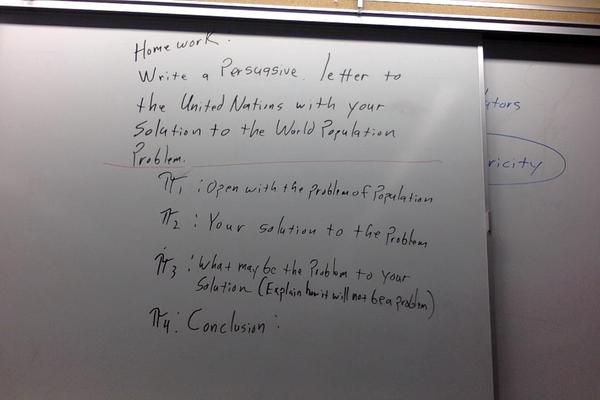 Homework:
Write a Persuasive letter to
the United Nations with your
Solution to the World Population
Problem.
¶1: Open with the problem of Population
¶2: Your solution to the Problem
¶3: What may be the Problem to your
Solution (Explain how it will not be a problem)
¶4: Conclusion:
tors
ricity